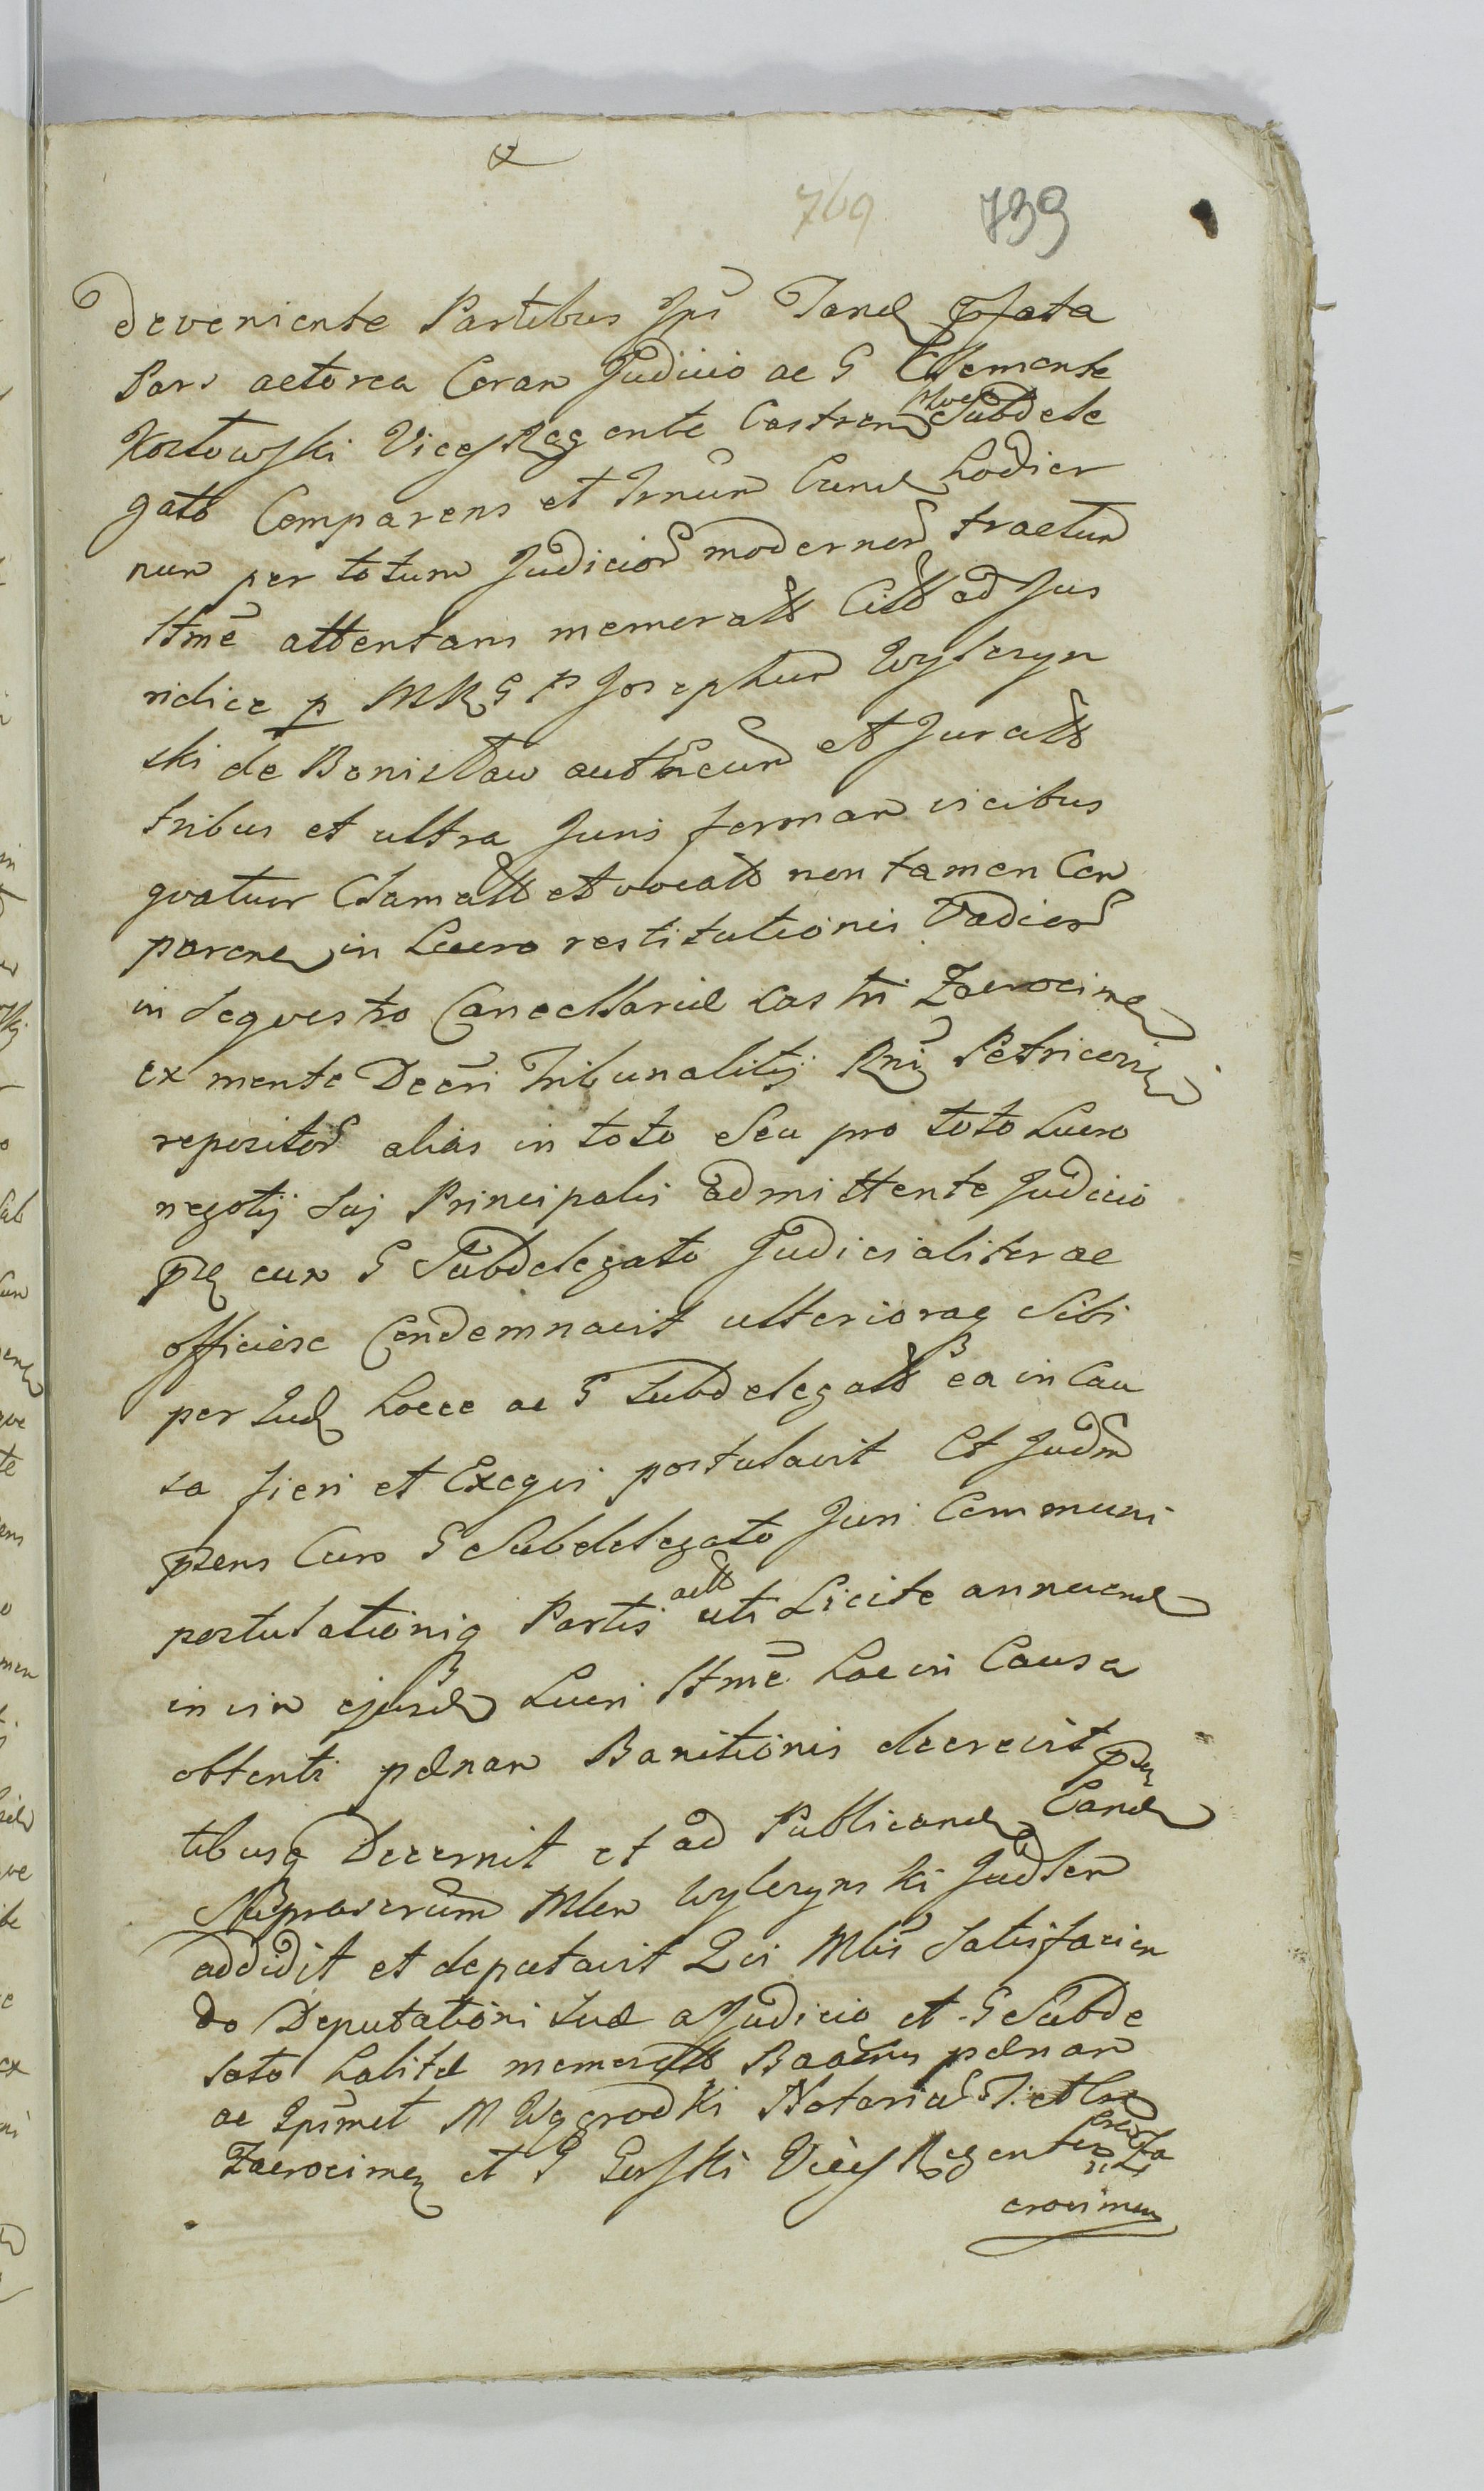 769 739
deveniente Partibus Ips Tand pfata
Pars actorea Coram Judicio ac G Clemente
Kozłowski Vices Regente Castren Subdele
gato Comparens et Trnum Cand hodier
num per totum Judicior modernor tractum
Ittme attentans memoratt Citt ad Jus
ridice p MRG P Josephum Wyleżyn
ski de Bonisław authencum et Juratt
tribus et ultra Juris formam vicibus
quatuor Clamatt et vocatt non tamen Com
paren in Lucro restitutionis Vadior
in sequestro Cancellariae Castri Zacrocimen
ex mente Decri Tribunalitij Rni Petricovien
repositor alias in toto Seu pro toto Lucro
negotij Suj Principalis admittente Judicio
pn cum G Subdelegato Judicialiter ac
officiose Condemnavit ulterioraq Sibi
per Jud hocce ac G Subdelegatt ea in Cau
sa fieri et Exeqvi postulavit Et Judm
pzens Cum G Subdelegato Juri Communi
postulationiq Partis actt uti Licite annuend
in vim ejusd Lucri Ittme hac in Causa
obtenti paenam Banitionis decrevit pn
tibusq Decernit et ad Publicand Eand
Mlem Wyleżynski Judlem
addidit et deputavit Qui Mlis Satisfacien
do Deputationi Suae a Judicio et G Subde
lato habitae memoratt paenam
ac Ipsmet M Wygrodzki T. et
Zacrocimen et G Gerski Vices Regentes Za
crocimen